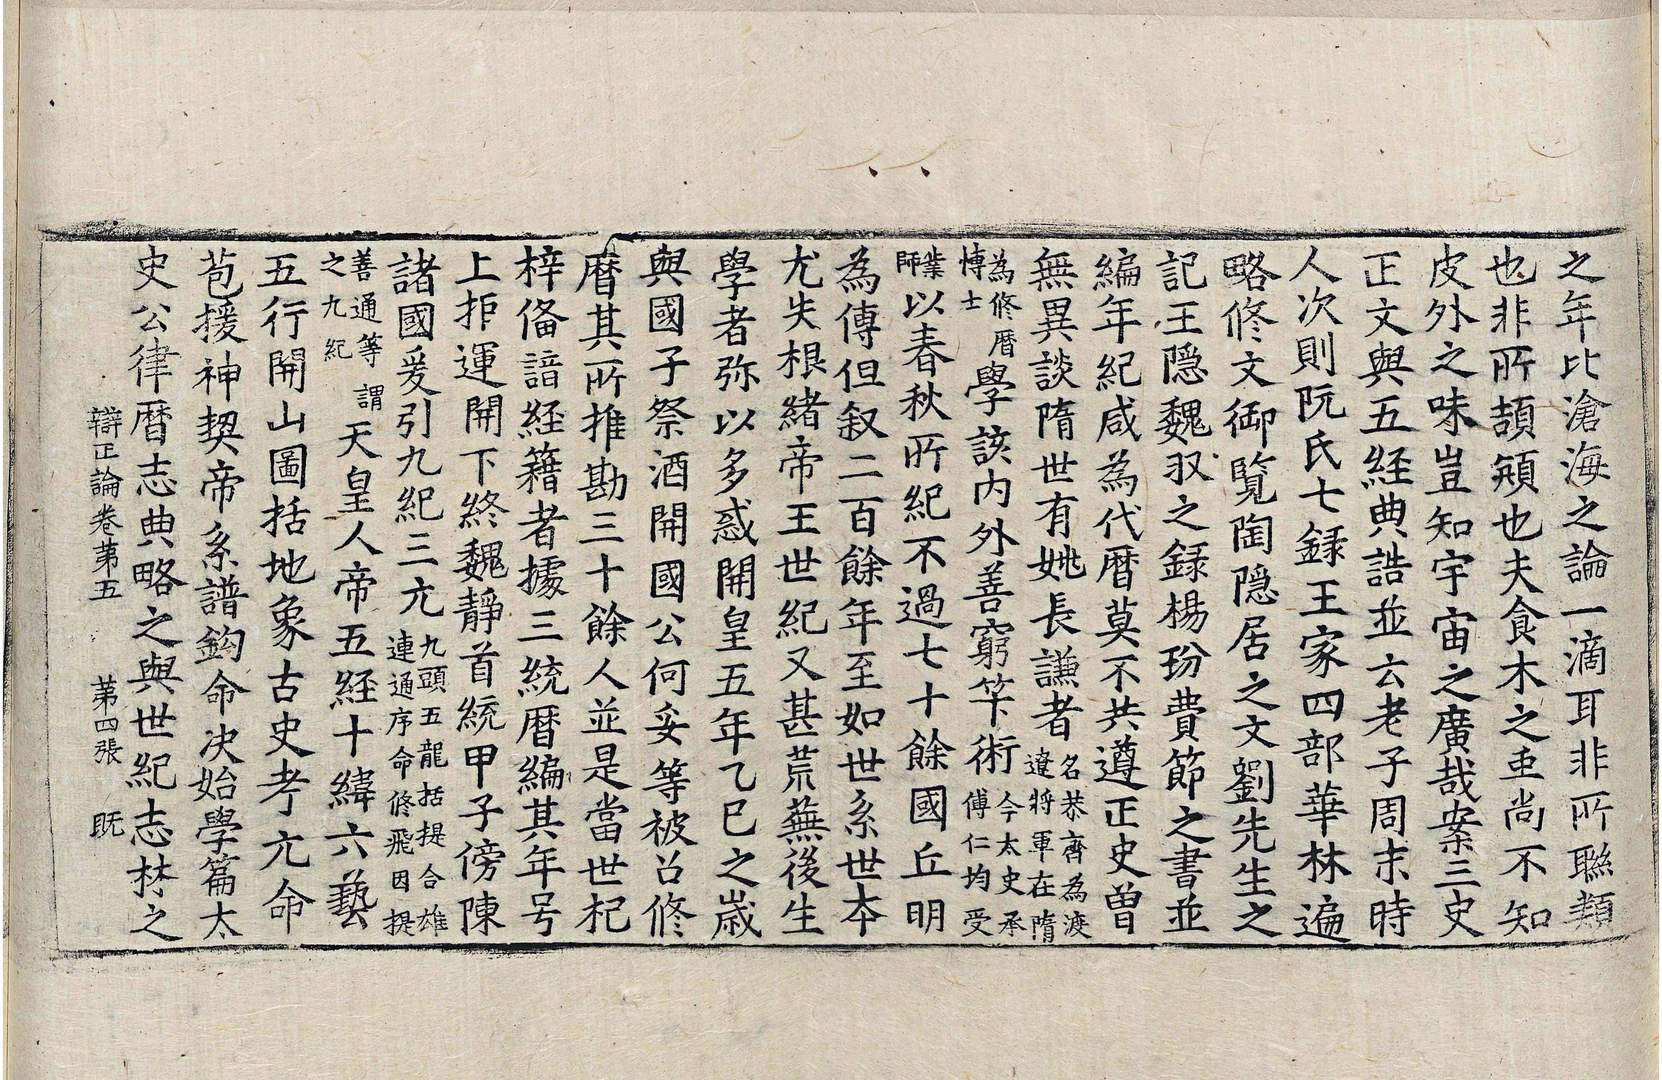 之年比滄海之論一滴耳非所聯類
也非所頡頏也夫食木之虫尚不知
皮外之味豈知宇宙之廣哉案三史
正文與五経典誥並云老子周末時
人次則阮氏七録王家四部華林遍
略修文御覧陶隐居之文劉先生之
記王隐魏収之録楊玢費節之書並
編年紀咸為代暦莫不共遵正史曽
無異談隋世有姚長謙者名恭齊為渡遼将軍在隋
為修暦博士學該内外善窮竿術今太史承傅仁均受
業師以春秋所紀不過七十餘國丘明
為傳但叙二百餘年至如世系世本
尤失根緒帝王世紀又甚荒蕪後生
學者弥以多惑開皇五年乙巳之歳
與國子祭酒開國公何妥等被召修
暦其所推勘三十餘人並是當世杞
梓俻諳経籍者據三統暦編其年号
上拒運開下終魏靜首統甲子傍陳
諸國爰引九紀三亢九頭五龍括提合雄連通序命修飛因提
善通等謂之九紀天皇人帝五経十緯六藝
五行開山圖括地象古史考亢命
苞援神契帝系譜鈎命决始學篇太
史公律暦志典略之與世紀志林之
辯正論巻第五 第四張 旣